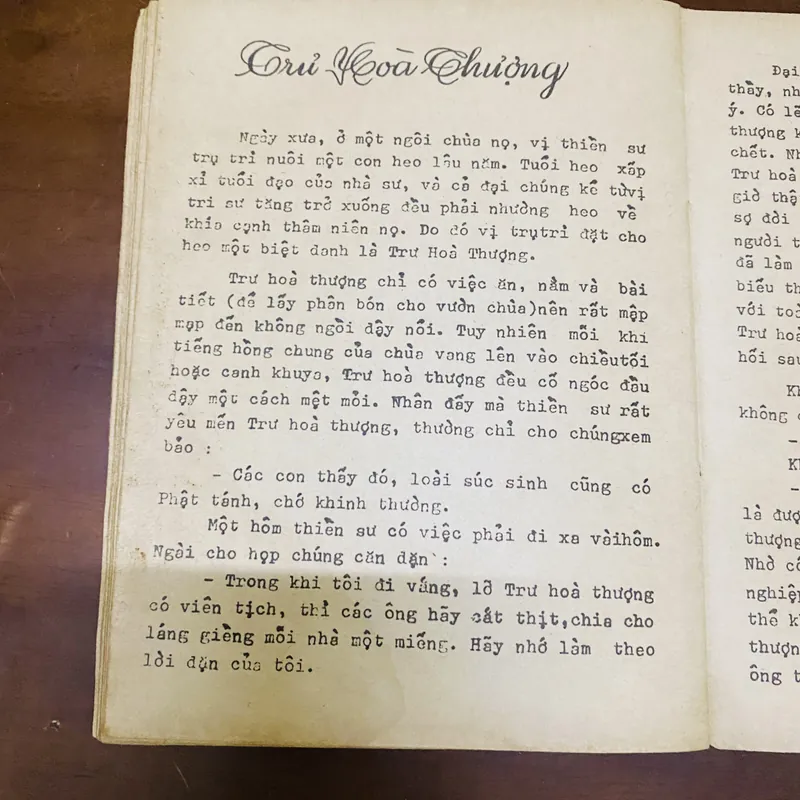 Trư Hoà Thượng
Ngày xưa, ở một ngôi chùa nọ, vị thiền sư
trụ trì nuôi một con heo lâu năm. Tuổi heo xấp
xỉ tuổi đạo của nhà sư, và cả đại chúng kể từvị
tri sư tăng trở xuống đều phải nhường heo về
khía cạnh thâm niên nọ. Do đó vị trụtrì đặt cho
heo một biệt danh là Trư Hoà Thượng.
Trư hoà thượng chỉ có việc ăn, nằm và bài
tiết (để lấy phân bón cho vườn chùa)nên rất mập
mạp đến không ngồi dậy nổi. Tuy nhiên mỗi khi
tiếng hồng chung của chùa vang lên vào chiềutối
hoặc canh khuya, Trư hoà thượng đều cố ngóc đầu
dậy một cách mệt mỏi. Nhân đấy mà thiền sư rất
yêu mến Trư hoà thượng, thường chỉ cho chúngxem
bảo :
- Các con thấy đó, loài súc sinh cũng có
Phật tánh, chớ khinh thường.
Một hôm thiền sư có việc phải đi xa vàihôm.
Ngài cho họp chúng căn dặn :
- Trong khi tôi đi vắng, lỡ Trư hoà thượng
có viên tịch, thì các ông hãy cắt thịt,chia cho
láng giềng mỗi nhà một miếng. Hãy nhớ làm theo
lời dặn của tôi.
Đại
thầy, nh
ý. Có lẽ
thượng k
chết. Nh
Trư hoà
giờ thậ
sợ đời
người t
đã làm
biểu th
với toà
Trư hoà
hối sau
Kh
không c
-
Kh
-
là đượ
thượng
Nhờ cô
nghiệp
thể kh
thượn
ông t